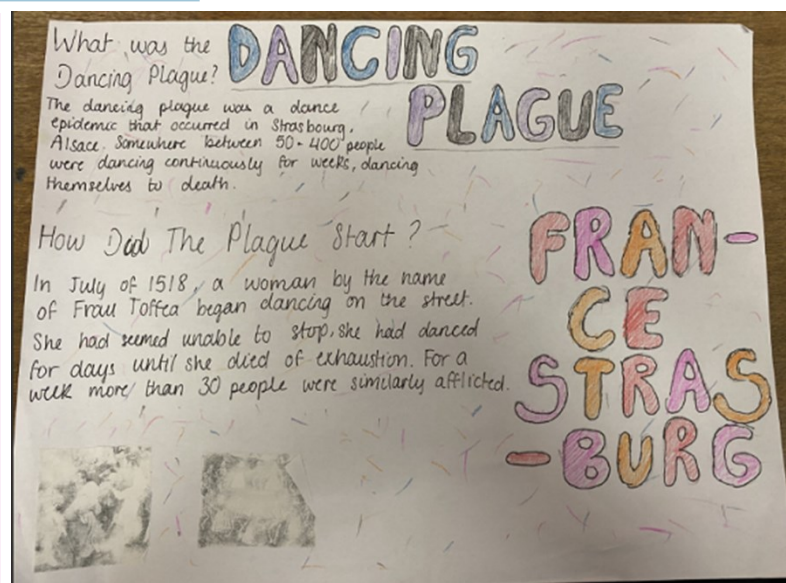 What was the
Dancing Plague?
DANCING
PLAGUE
The dancing plague was a dance
epidemic that occurred in Strasbourg,
Alsace. Somewhere between 50-400 people
were dancing continuously for weeks, dancing
themselves to death.
How Did The Plague Start?
In July of 1518, a woman by the name
of Frau Toffea began dancing on the street.
She had seemed unable to stop, she had danced
for days until she died of exhaustion. For a
week more than 30 people were similarly afflicted.
FRAN-
CE
STRAS
-BURG